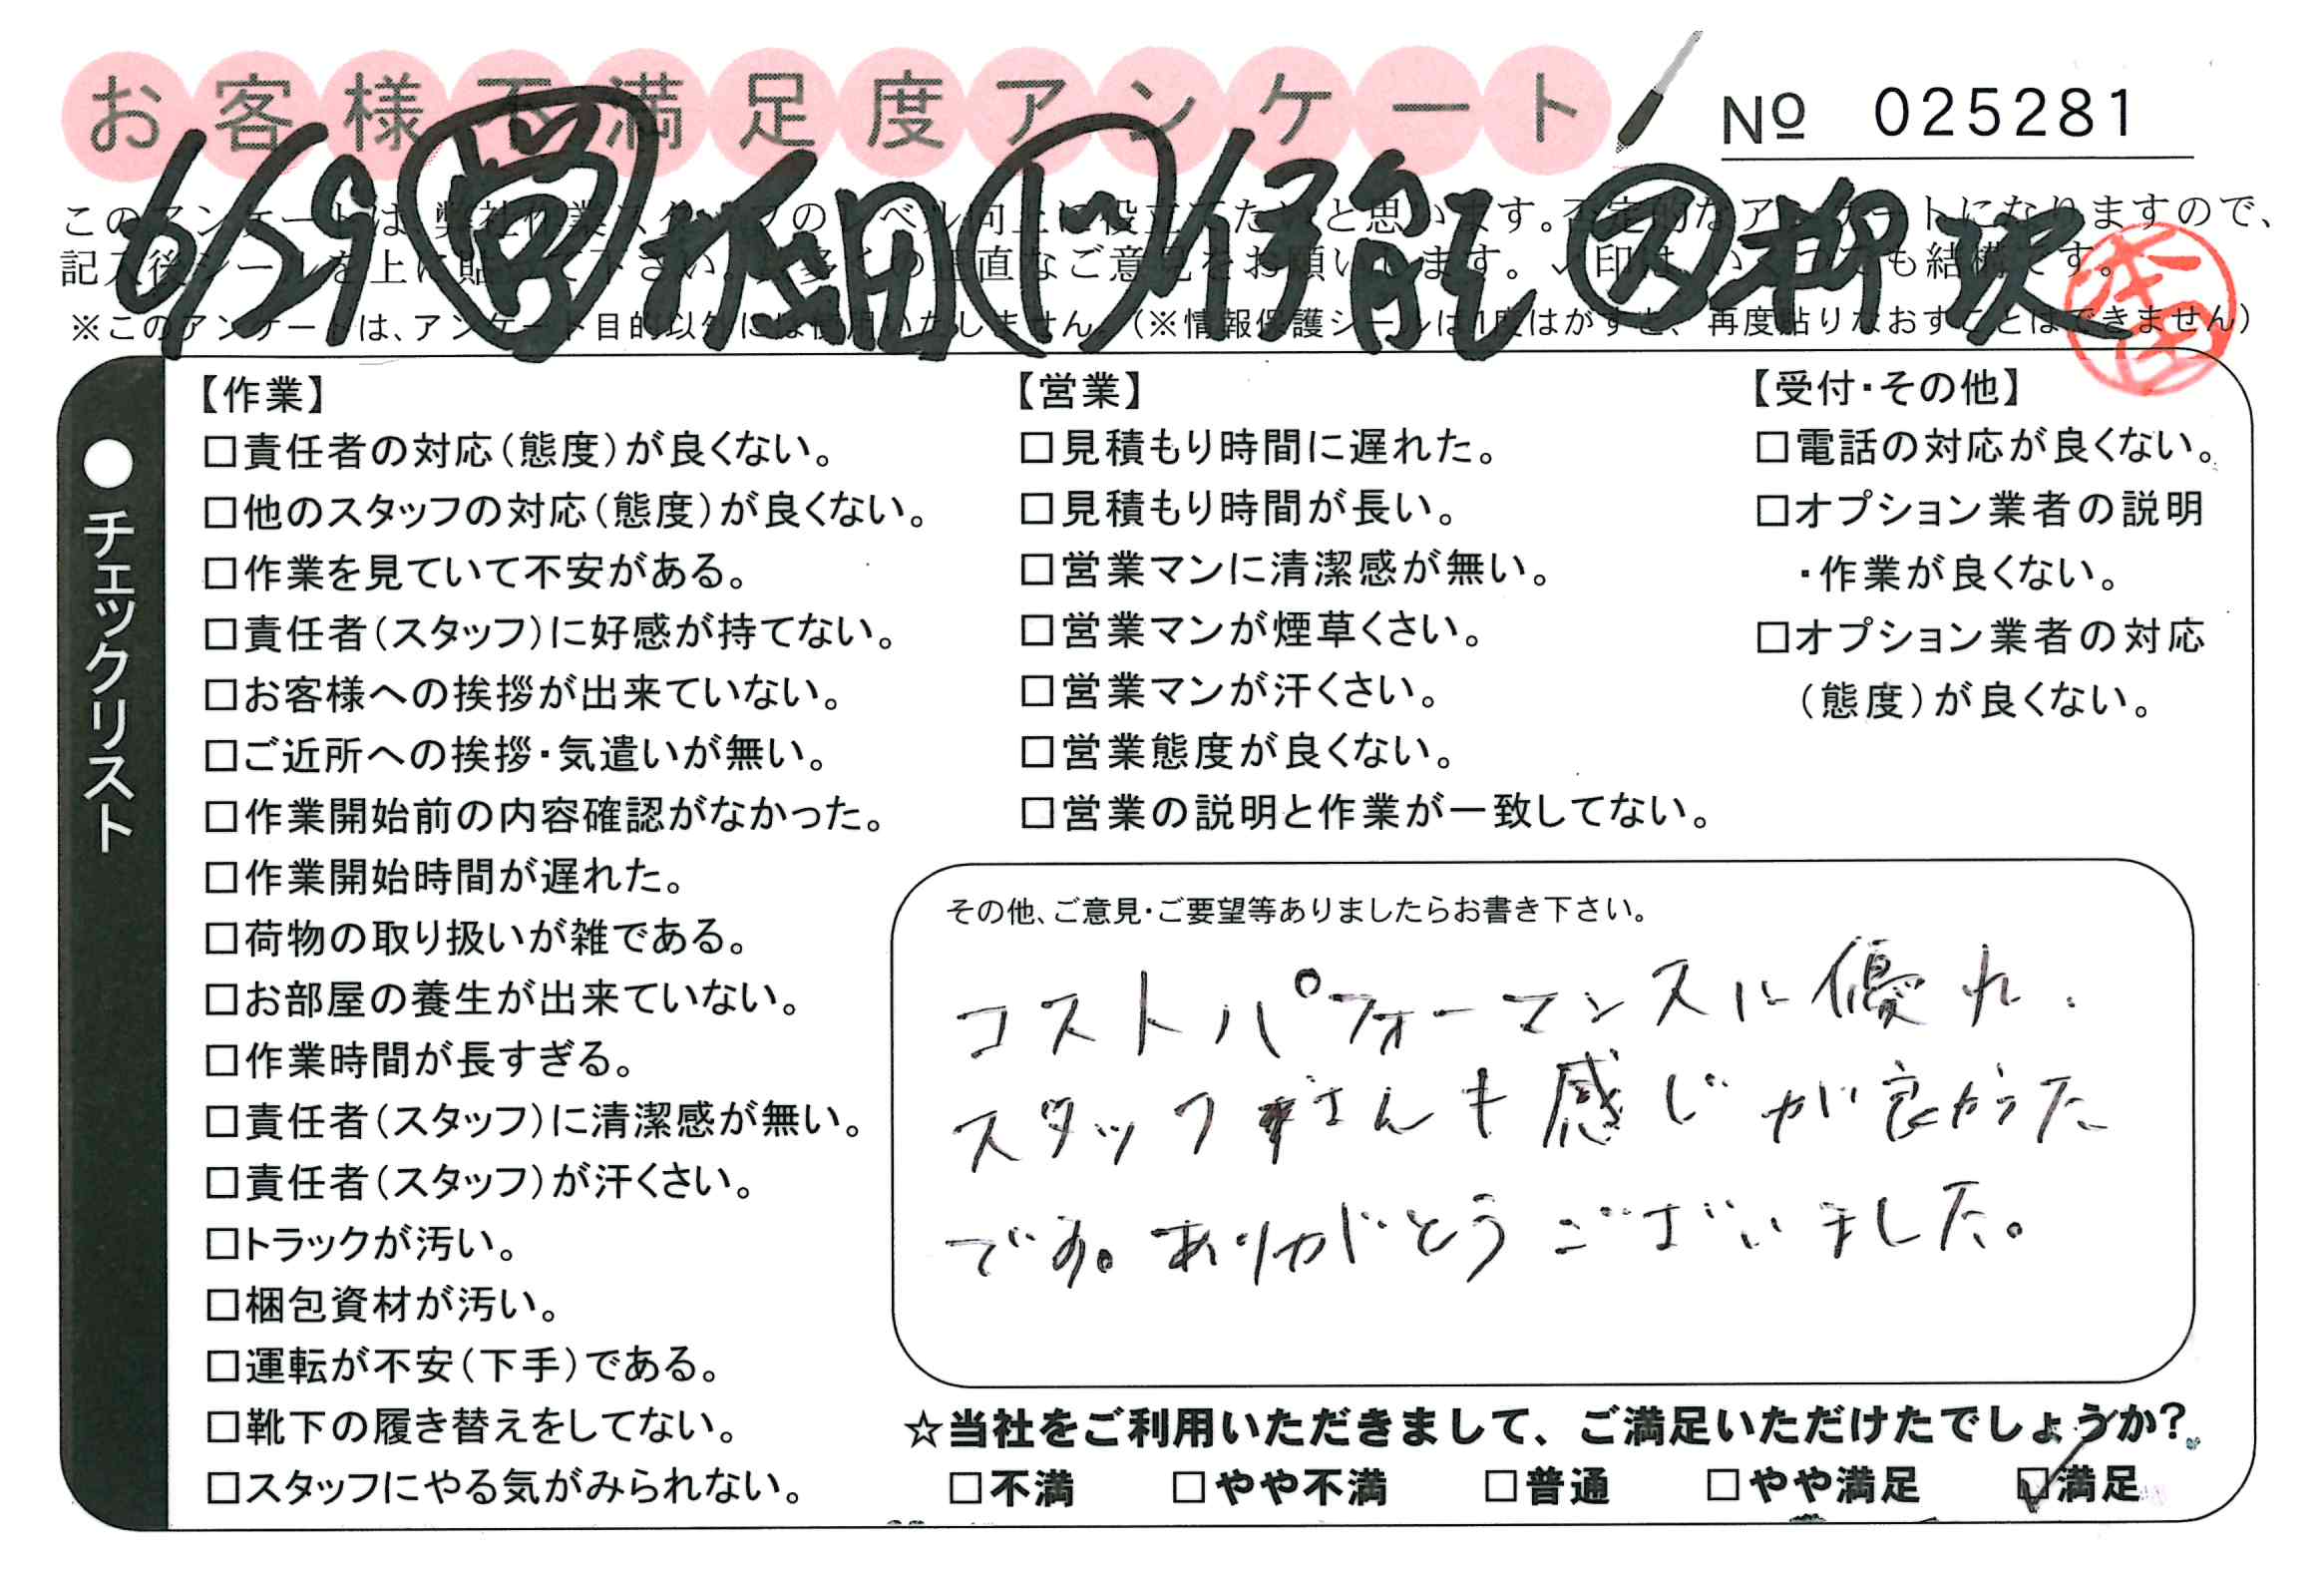 お客様不満足度アンケート
№ 025281
6/29 営 板田 リ 伊能 ス 柳沢
本田
このアンケートは、弊社作業スタッフのレベル向上に役立てたいと思います。否定的なアンケートになりますので、
記入後シールを上に貼って下さい。数多くの正直なご意見をお願いします。✓印は、いくつでも結構です。
※このアンケートは、アンケート目的以外には使用いたしません。(※情報保護シールは1度はがすと、再度貼りなおすことはできません)
●チェックリスト
【作業】
□責任者の対応(態度)が良くない。
□他のスタッフの対応(態度)が良くない。
□作業を見ていて不安がある。
□責任者(スタッフ)に好感が持てない。
□お客様への挨拶が出来ていない。
□ご近所への挨拶・気遣いが無い。
□作業開始前の内容確認がなかった。
□作業開始時間が遅れた。
□荷物の取り扱いが雑である。
□お部屋の養生が出来ていない。
□作業時間が長すぎる。
□責任者(スタッフ)に清潔感が無い。
□責任者(スタッフ)が汗くさい。
□トラックが汚い。
□梱包資材が汚い。
□運転が不安(下手)である。
□靴下の履き替えをしてない。
□スタッフにやる気がみられない。
【営業】
□見積もり時間に遅れた。
□見積もり時間が長い。
□営業マンに清潔感が無い。
□営業マンが煙草くさい。
□営業マンが汗くさい。
□営業態度が良くない。
□営業の説明と作業が一致してない。
【受付・その他】
□電話の対応が良くない。
□オプション業者の説明
・作業が良くない。
□オプション業者の対応
(態度)が良くない。
その他、ご意見・ご要望等ありましたらお書き下さい。
コストパフォーマンスに優れ、
スタッフさんも感じが良かった
です。ありがとうございました。
☆当社をご利用いただきまして、ご満足いただけたでしょうか?
□不満 □やや不満 □普通 □やや満足 ☑満足